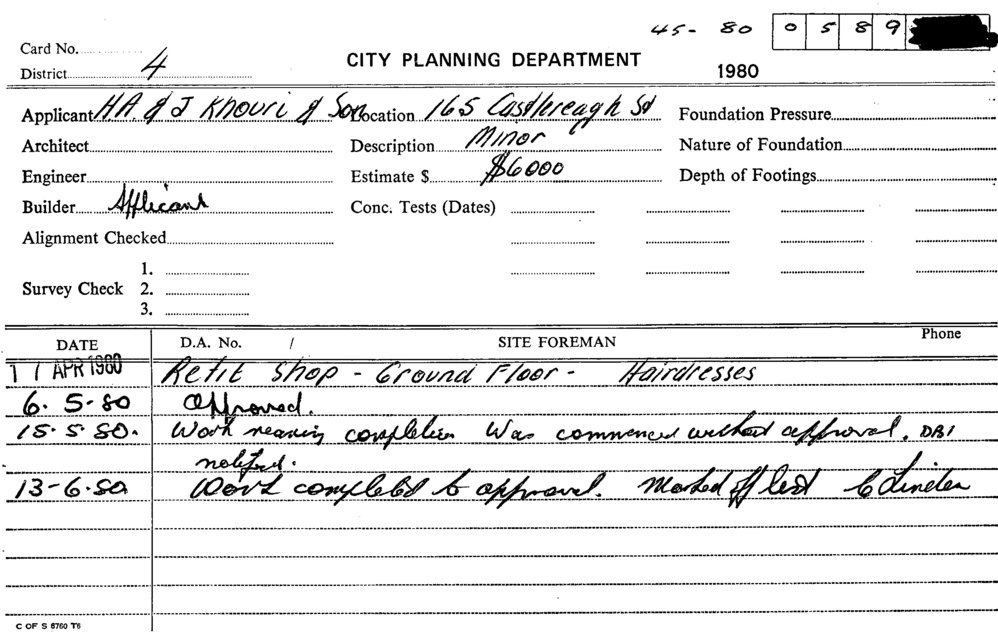 45- 80 0 5 8 9
Card No.
District 4
CITY PLANNING DEPARTMENT
1980
Applicant HA. & J Khouri & Son Location 165 Castlereagh St Foundation Pressure
Architect Description Minor Nature of Foundation
Engineer Estimate $ $6000 Depth of Footings
Builder Applicant Conc. Tests (Dates)
Alignment Checked
1.
Survey Check 2.
3.
DATE D.A. No. / SITE FOREMAN Phone
11 APR 1980 Refit Shop - Ground Floor - Hairdresses
6. 5.80 Approved.
15.5.80. Work nearing completion Was commenced without approval. DBI
notified.
13-6.80 Work completed to approval. Marked off C Linden
C OF S 6760 T6